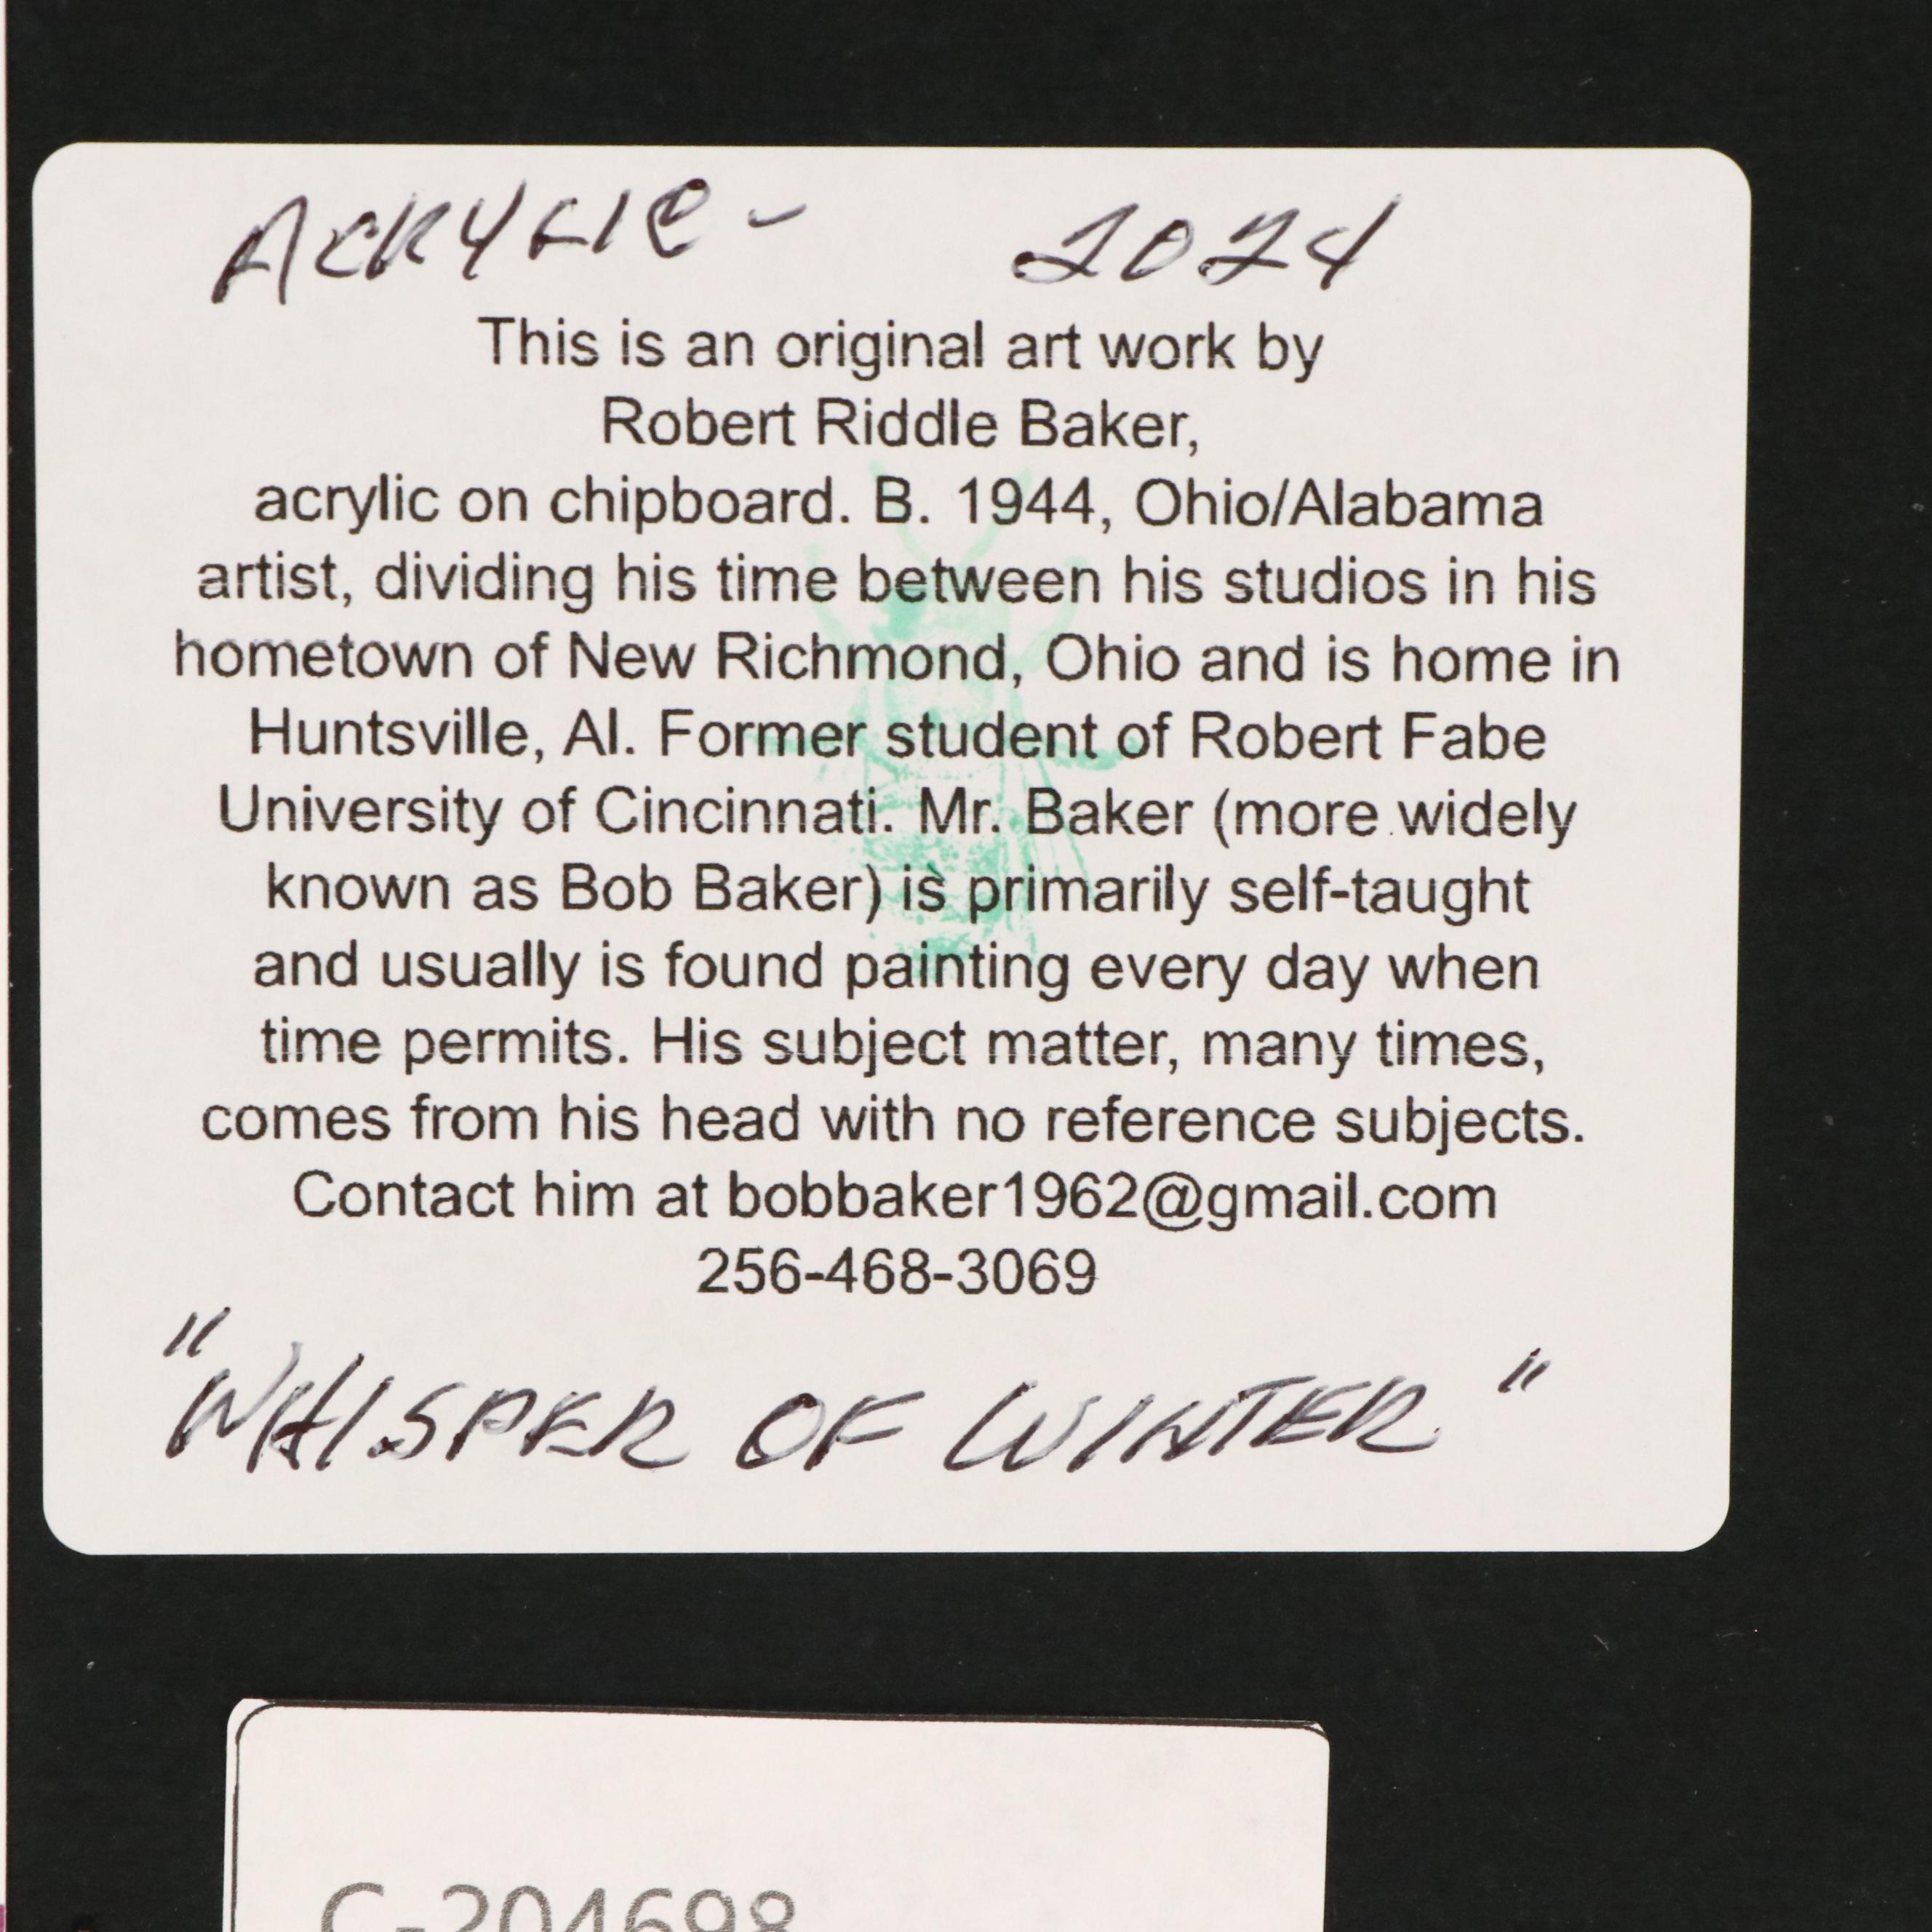 ACRYLIC - 2024
This is an original art work by
Robert Riddle Baker,
acrylic on chipboard. B. 1944, Ohio/Alabama
artist, dividing his time between his studios in his
hometown of New Richmond, Ohio and is home in
Huntsville, Al. Former student of Robert Fabe
University of Cincinnati. Mr. Baker (more widely
known as Bob Baker) is primarily self-taught
and usually is found painting every day when
time permits. His subject matter, many times,
comes from his head with no reference subjects.
Contact him at bobbaker1962@gmail.com
256-468-3069
"WHISPER OF WINTER"
C-204698